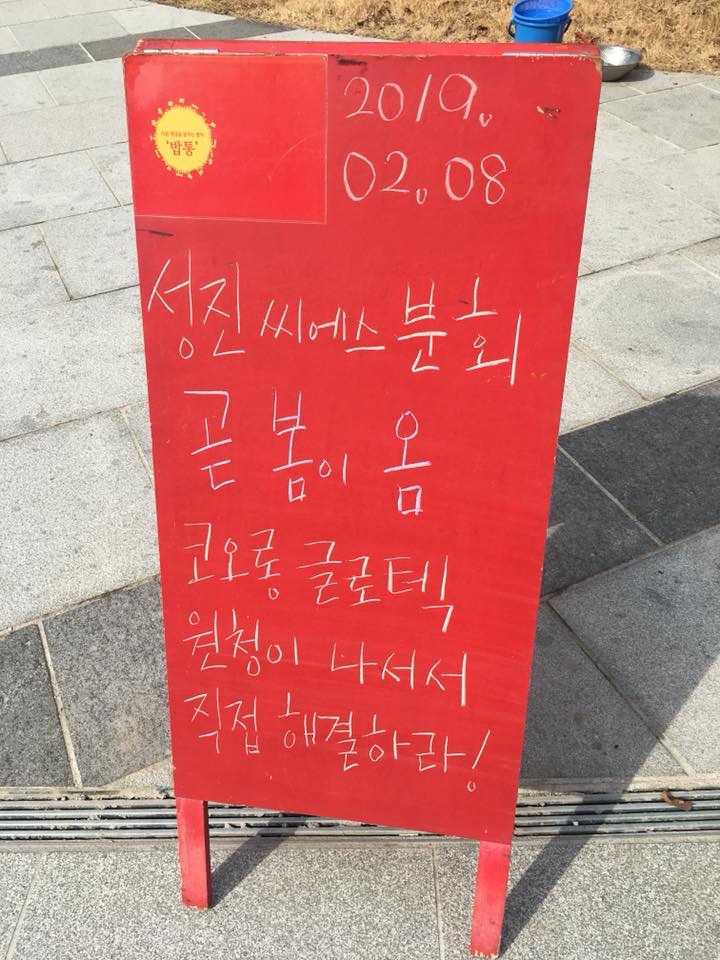 '밥통'
2019.
02.08
성진 씨에스 분회
곧 봄이 옴
코오롱 글로텍
원청이 나서서
직접 해결하라!